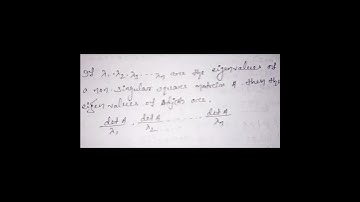 If λ₁, λ₂, λ₃ ... λn are the eigenvalues of
a non-singular square matrix A then the
eigen values of adjA are,
det A/λ₁, det A/λ₂ ....... det A/λn